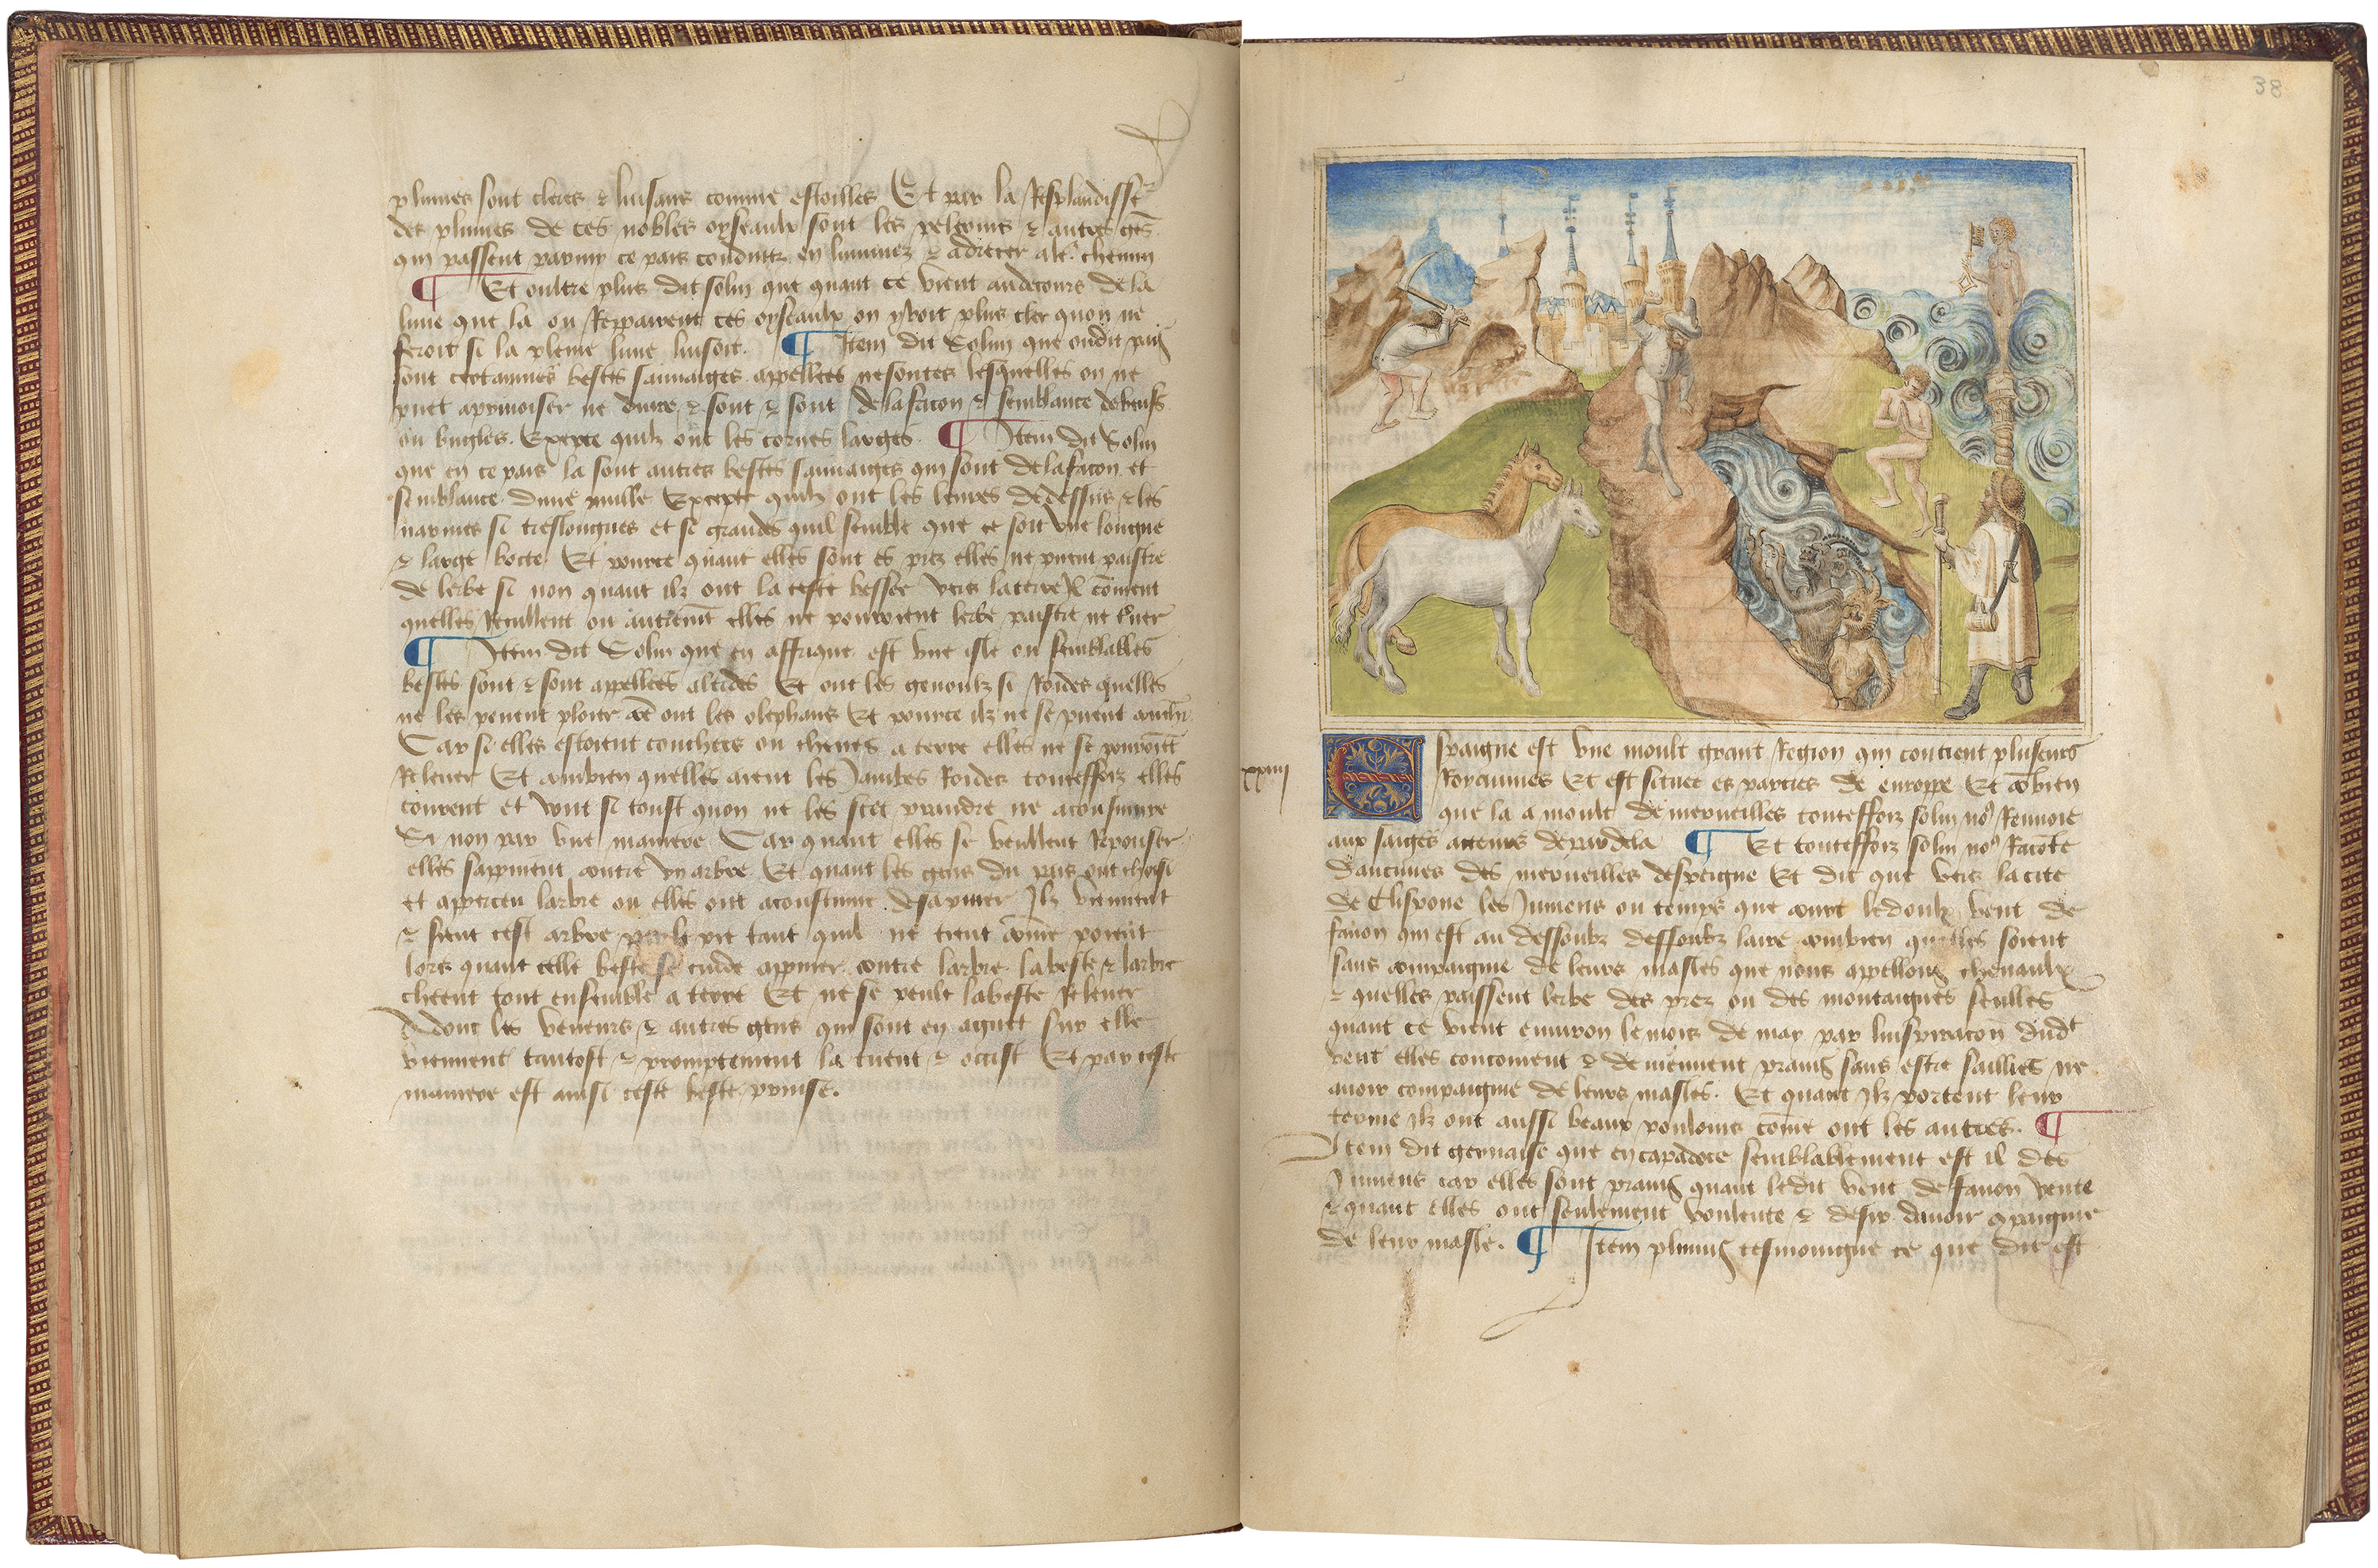 plumes sont cleres & luisans comme estoilles Et par la Resplandiss
des plumes de ces nobles oyseaulx sont les pelerins & autres gēs
qui passent parmy ce pais conduitz en luminez & adrecer a le chemin
¶ Et oultre plus dit solin que quant ce vient au decours de la
lune que la ou Repparent ces oyseaulx on y voit plus cler quon ne
feroit si la pleine lune luisoit. ¶ Item dit Solin que oudit pais
sont certaines bestes sauuaiges appellees nesontes lesquelles on ne
puet apriuoiser ne & sont & sont de la facon & semblance de beufz
ou bugles. Excepte quilz ont les cornes larges. ¶ Item dit Solin
que en ce pais la sont autres bestes sauuaiges qui sont de la facon et
semblance dune mulle Excepte quilz ont les leures de dessus & les
narines si treslongues et si grandes quil semble que ce soit vne longue
& large bote Et pource quant elles sont es prez elles ne puent paistre
de lerbe si non quant ilz ont la teste bessee vers la terre coment
quelles Reculent ou autremēt elles ne pourroient lerbe paistre ne
¶ Item dit Solin que en affrique est vne isle ou semblables
bestes sont & sont appellees alcides Et ont les genoulz si Roides quelles
ne les peuent ploier cōe ont les olephans Et pource ilz ne se puent couchr
Car si elles estoient couchees ou cheues a terre elles ne se pourroiēt
Releuer Et combien quelles aient les Jambes Roides touteffoiz elles
courent et vont si toust quon ne les scet prandre ne aconsuiure
Si non par vne maniere Car quant elles se veullent Repouser
elles sappuient contre vn arbre Et quant les gens du pais ont choisi
et apperceu larbre ou elles ont acoustume desapuier Ilz viennent
& sient cest arbre par le pie tant quil ne tient cōme point
lors quant celle beste se cuide appuier contre larbre la beste & larbre
cheent tout ensemble a terre Et ne se peult la beste Releuer
Adonc les veneurs & autres gens qui sont en aguet sur elle
viennent tantost & promptement la tuent & occist Et par ceste
maniere est ainsi ceste beste prinse.
38
Espaigne est vne moult grant Region qui contient pluseurs
xxiiii
Royaumes Et est situee es parties de europpe Et cōbien
que la a moult de merueilles touteffoiz solin noꝰ Renuoie
aux saiges acteurs de par dela ¶ Et touteffoiz solin noꝰ Racōte
daucunes des merueilles despeigne Et dit que vers la cite
de Elispone les Jumens ou temps que court le doulx vent de
fauon qui est au dessoubz dessoubz laire combien quelles soient
sans compaignie de leurs masles que nous appellons cheuaulx
& quelles paissent lerbe des prez ou des montaignes seulles
quant ce vient enuiron le mois de may par linspiracōn dudt
vent elles concoiuent & deuiennent prains sans estre saillies ne
auoir compaignie de leurs masles. Et quant Ilz portent leur
terme Ilz ont aussi beaux poulains cōme ont les autres. ¶
Item dit geruaise que en capadoce semblablement est il des
Jumens car elles sont prains quant ledit vent de fauon vente
& quant elles ont seulement voulente & desir dauoir cpaignie
de leur masle. ¶ Item plinius tesmoingne ce que dit est